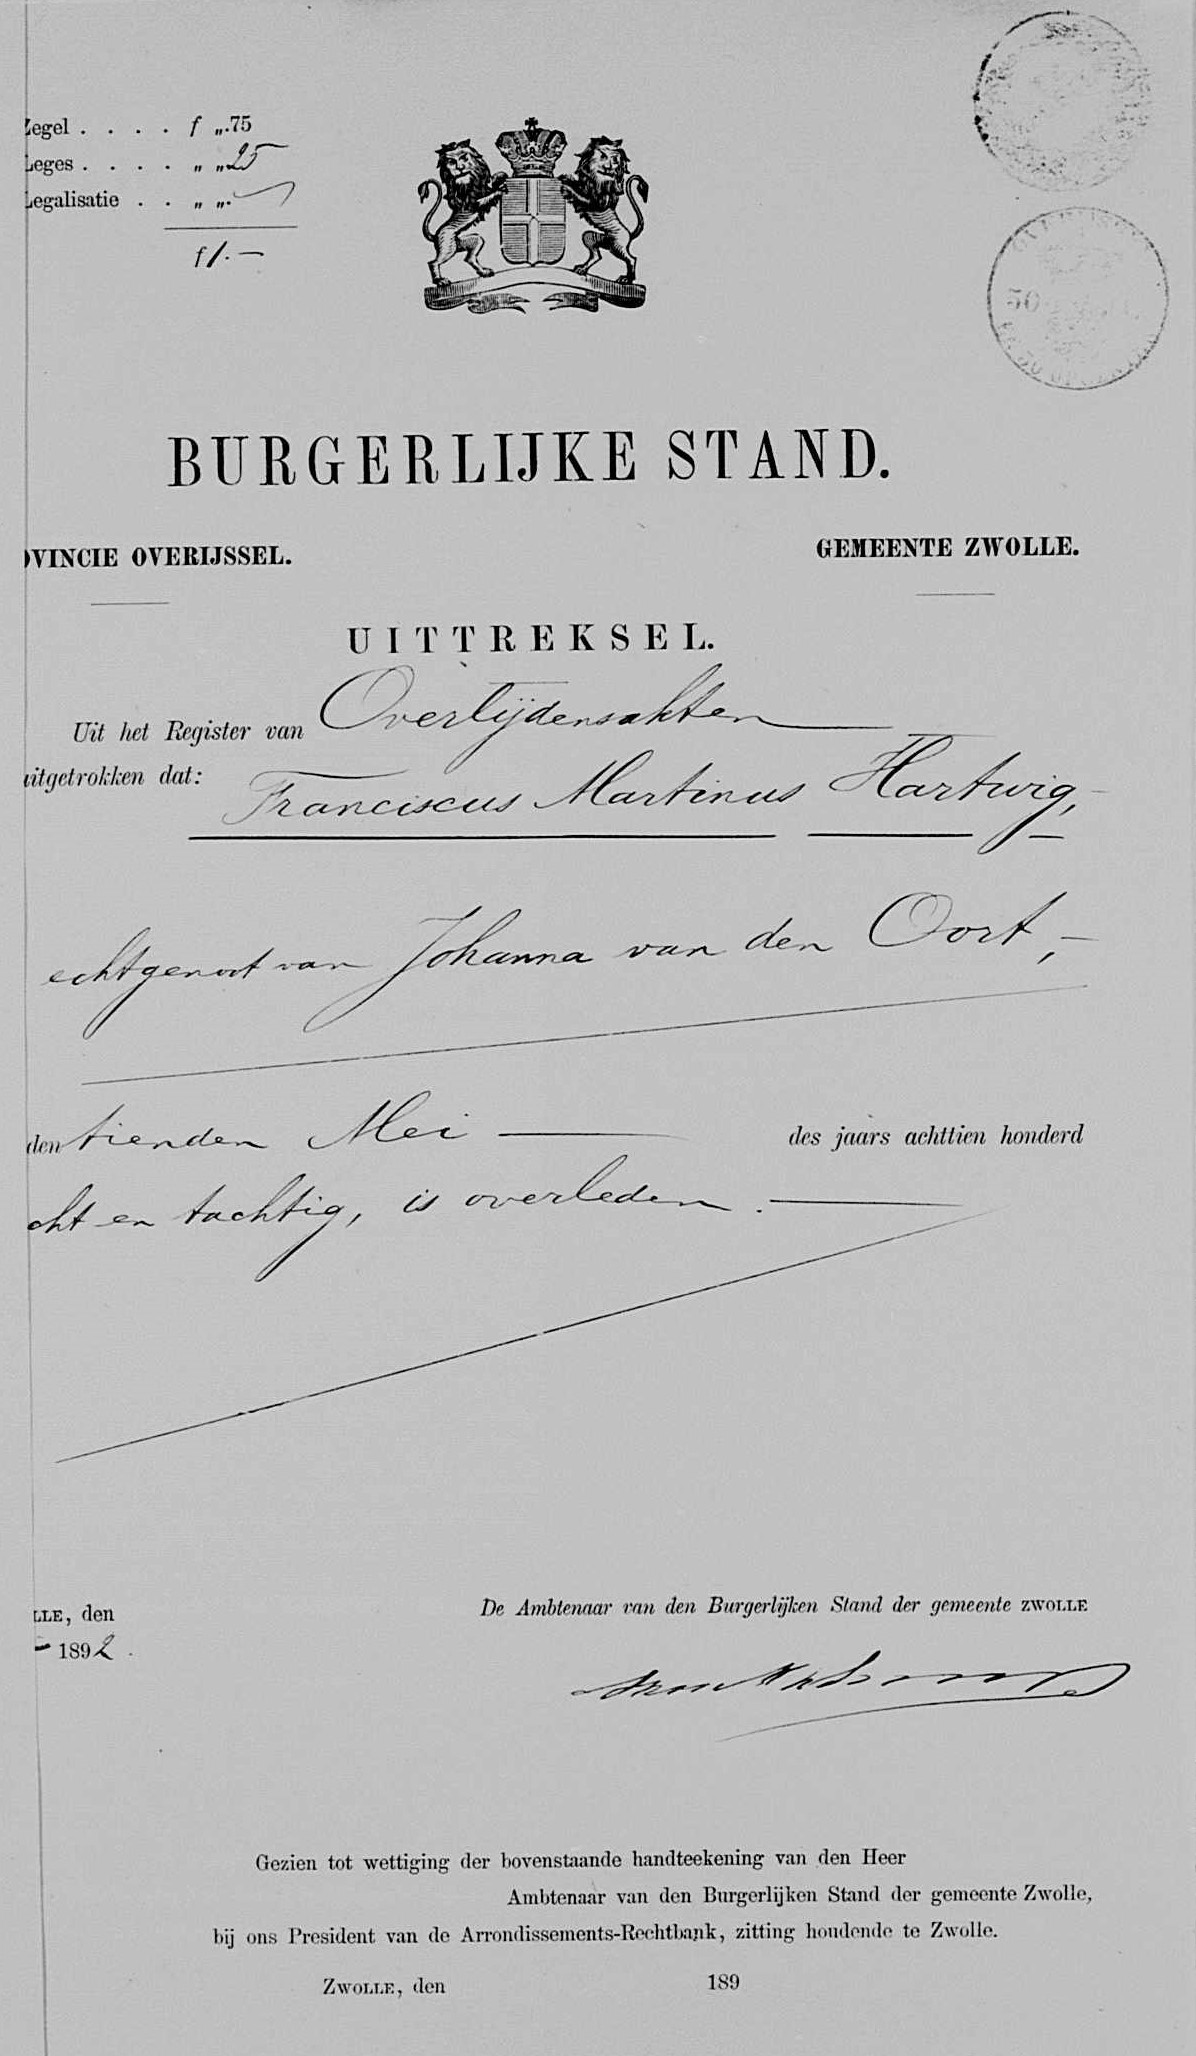 Zegel . . . . f „.75
Leges . . . . „ „25
Legalisatie . . „ „.
f1.—
BURGERLIJKE STAND.
OVINCIE OVERIJSSEL.
GEMEENTE ZWOLLE.
UITTREKSEL.
Uit het Register van Overlijdensakten
uitgetrokken dat:
Franciscus Martinus Hartwig,
echtgenoot van Johanna van den Oort,
den tienden Mei des jaars achttien honderd
cht en tachtig, is overleden.
LLE, den
1892.
De Ambtenaar van den Burgerlijken Stand der gemeente ZWOLLE
Gezien tot wettiging der bovenstaande handteekening van den Heer
Ambtenaar van den Burgerlijken Stand der gemeente Zwolle,
bij ons President van de Arrondissements-Rechtbank, zitting houdende te Zwolle.
ZWOLLE, den 189